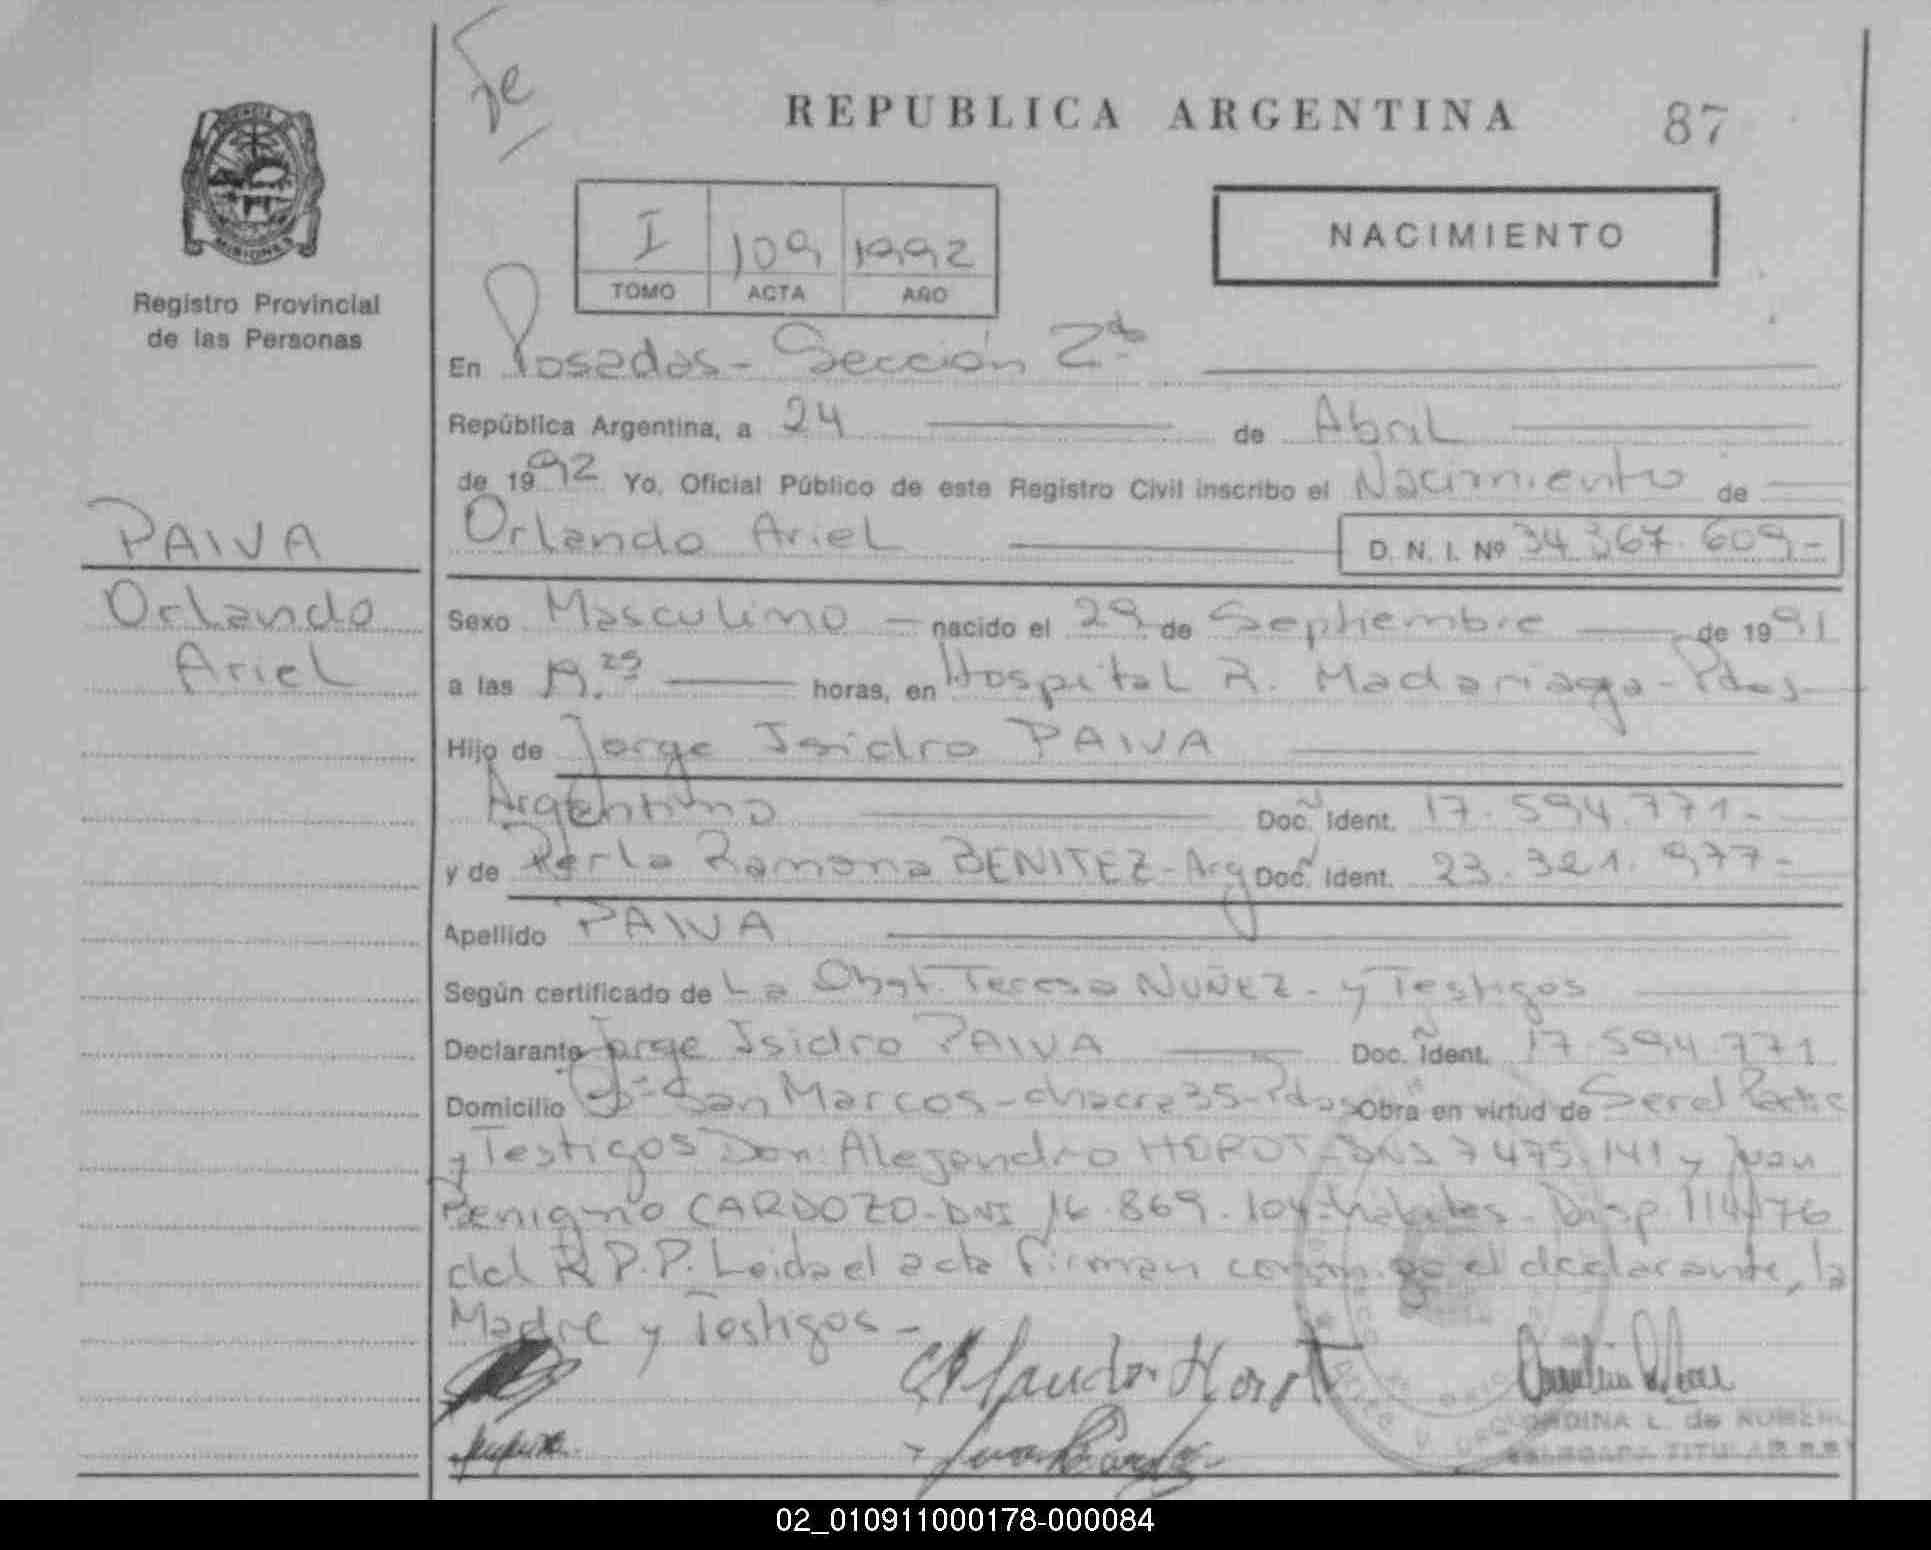 Fe
REPUBLICA ARGENTINA 87
MISIONES
Registro Provincial
de las Personas
I 109 1992
TOMO ACTA AÑO
NACIMIENTO
En Posadas - Sección 2ª
República Argentina, a 24 de Abril
de 1992 Yo, Oficial Público de este Registro Civil inscribo el Nacimiento de
Orlando Ariel D. N. I. Nº 34.367.609-
PAIVA
Orlando
Ariel
Sexo Masculino - nacido el 29 de Septiembre de 1991
a las horas, en Hospital R. Madariaga - Pdas-
Hijo de Jorge Isidro PAIVA
Argentino Doc. Ident. 17.594.771-
y de Perla Ramona BENITEZ - Arg Doc. Ident. 23.321.977-
Apellido PAIVA
Según certificado de La Obst. Teresa NUÑEZ - y Testigos
Declarante Jorge Isidro PAIVA Doc. Ident. 17.594.771
Domicilio Bº San Marcos - chacra 35 - Pdas Obra en virtud de Ser el Padre
y Testigos Don: Alejandro DNI 7.475.141 y Juan
Benigno CARDOZO - DNI 16.869.104 - habiles - Disp. 114/76
del R.P.P. Leida el acta firman conmigo el declarante, la
Madre y Testigos -
02_010911000178-000084